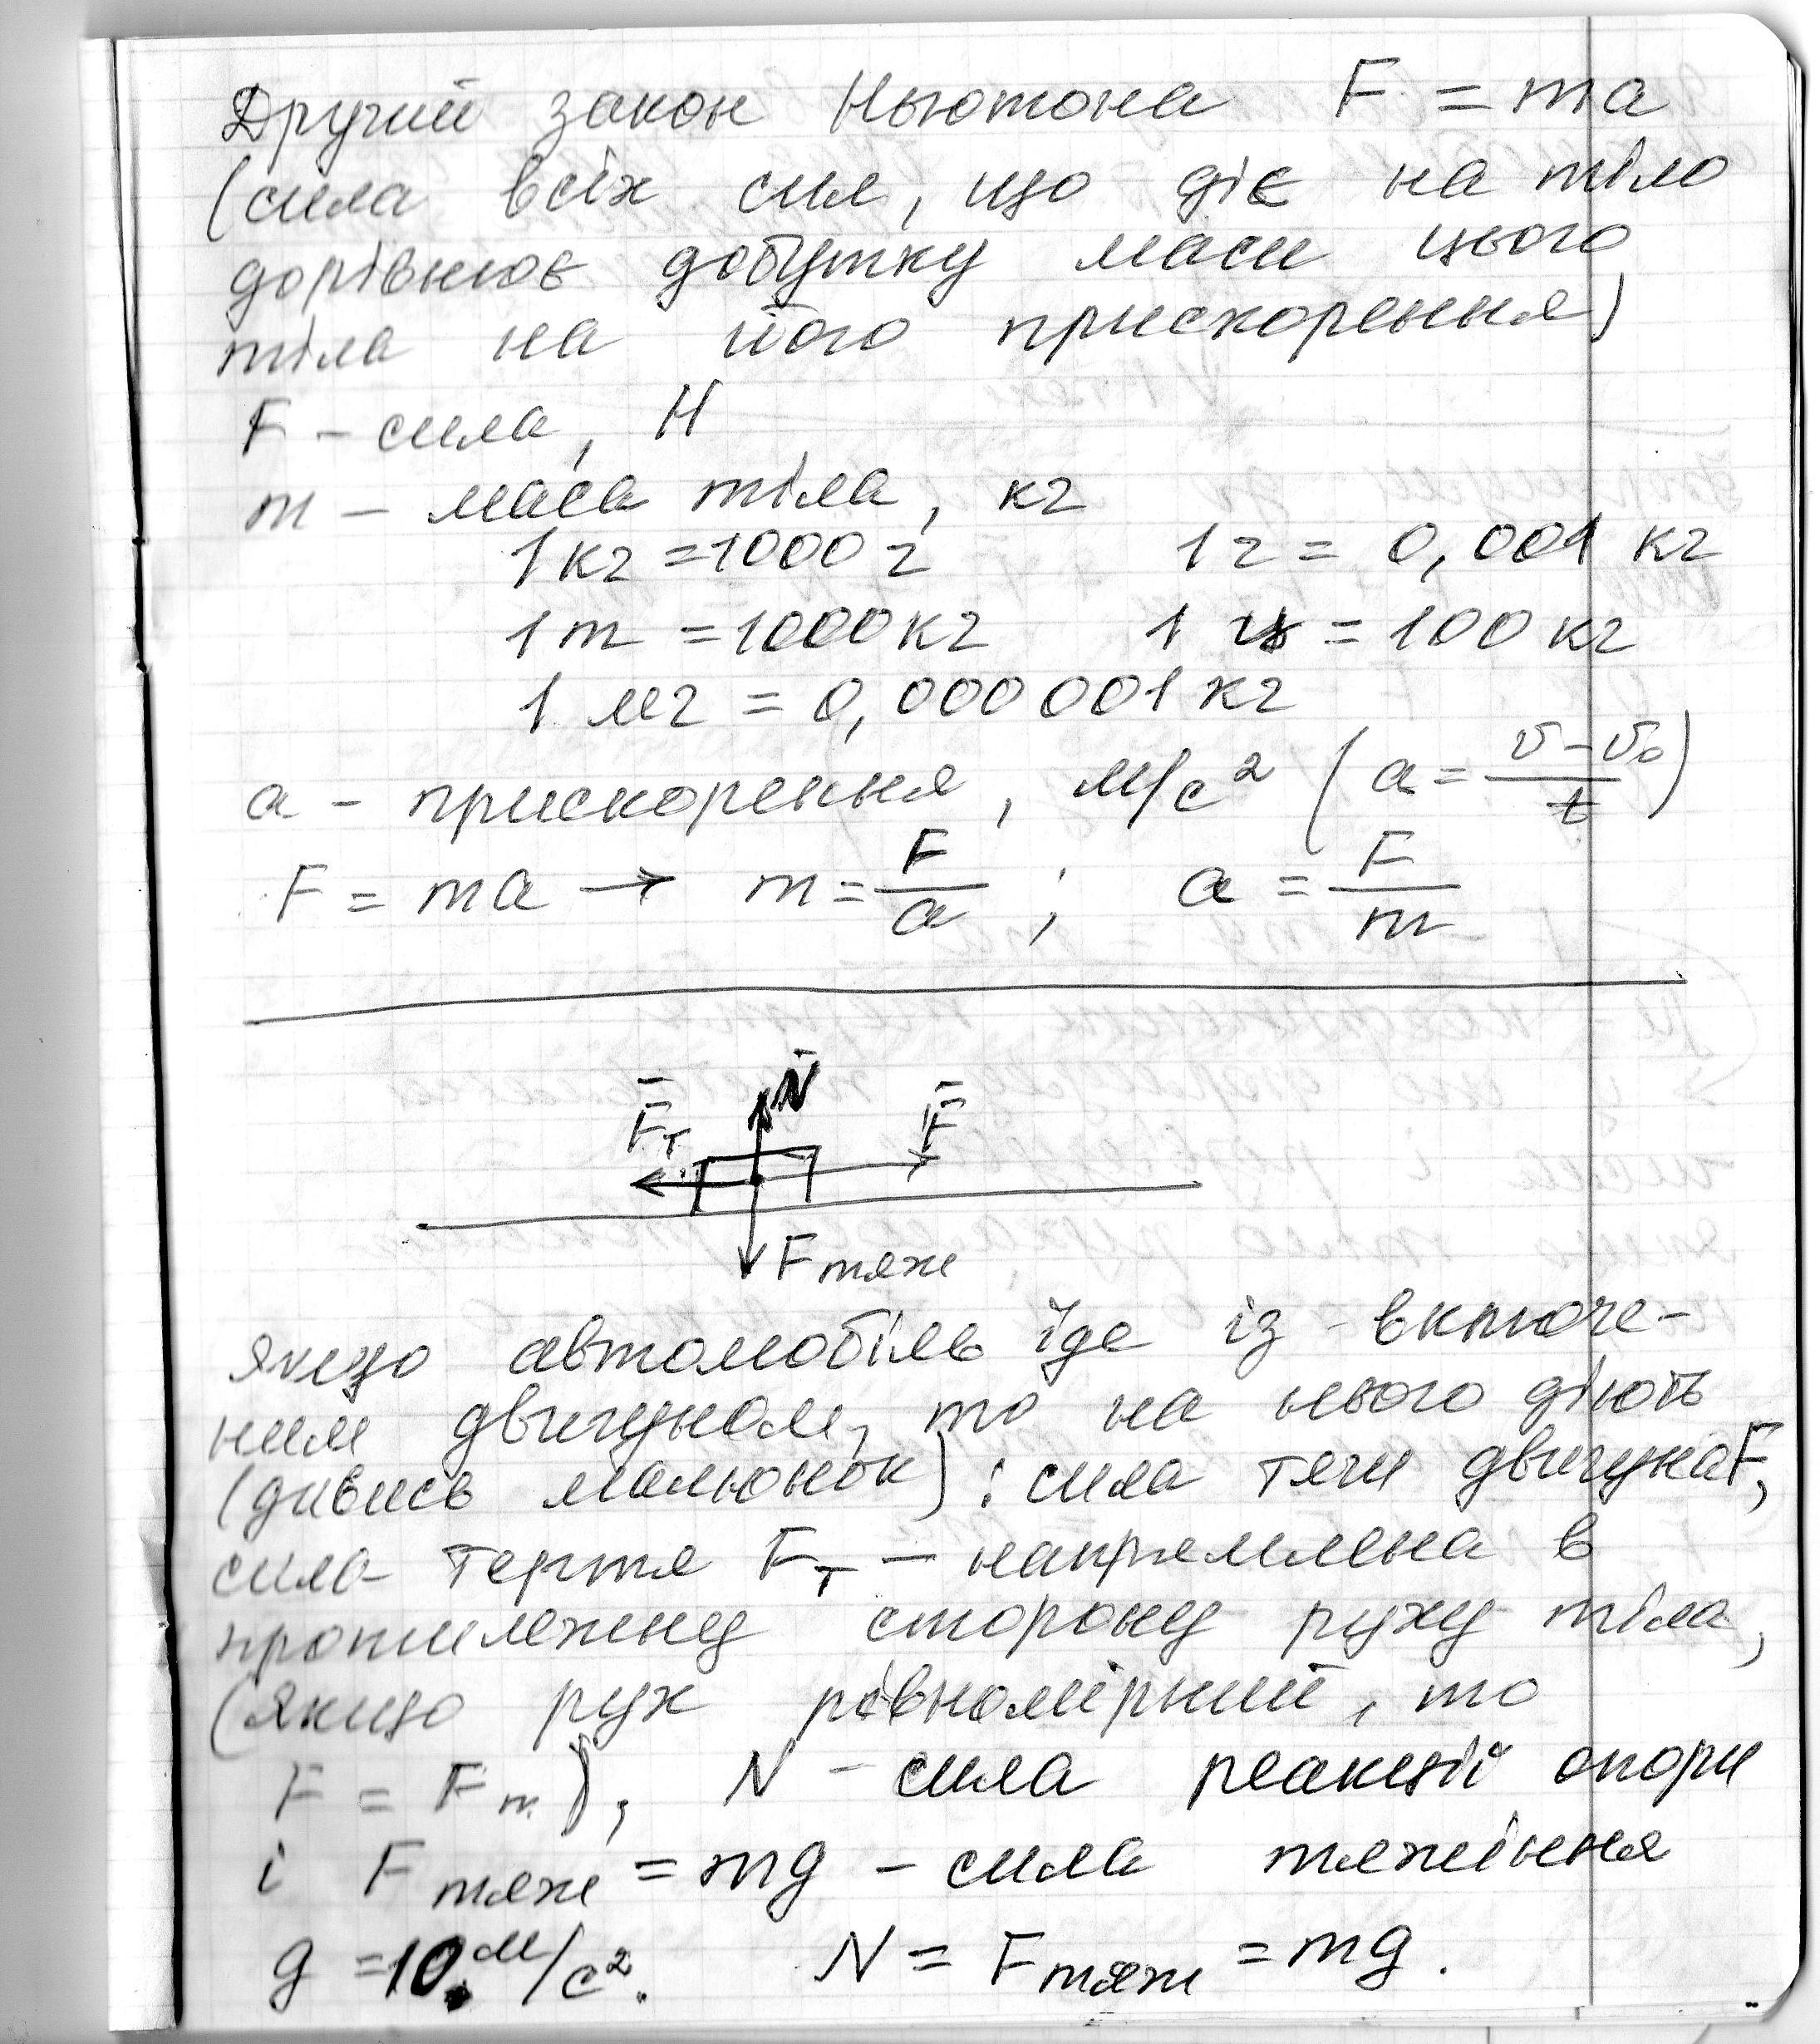 Другий закон Ньютона F = ma
(сила всіх сил, що діє на тіло
дорівнює добутку маси цього
тіла на його прискорення)
F – сила, Н
m – маса тіла, кг
1 кг = 1000 г 1 г = 0,001 кг
1 т = 1000 кг 1 ц = 100 кг
1 мг = 0,000 001 кг
a – прискорення, м/с² (a = (v – v₀)/t)
F = ma → m = F/a ; a = F/m
N̄
F̄т F̄
Fтяж
Якщо автомобіль їде із включе-
ним двигуном, то на нього діють
(дивись малюнок): сила тяги двигуна F,
сила тертя Fт – напрямлена в
протилежну сторону руху тіла,
(якщо рух рівномірний, то
F = Fт), N – сила реакції опори
і Fтяж = mg – сила тяжіння
g = 10 м/с². N = Fтяж = mg.